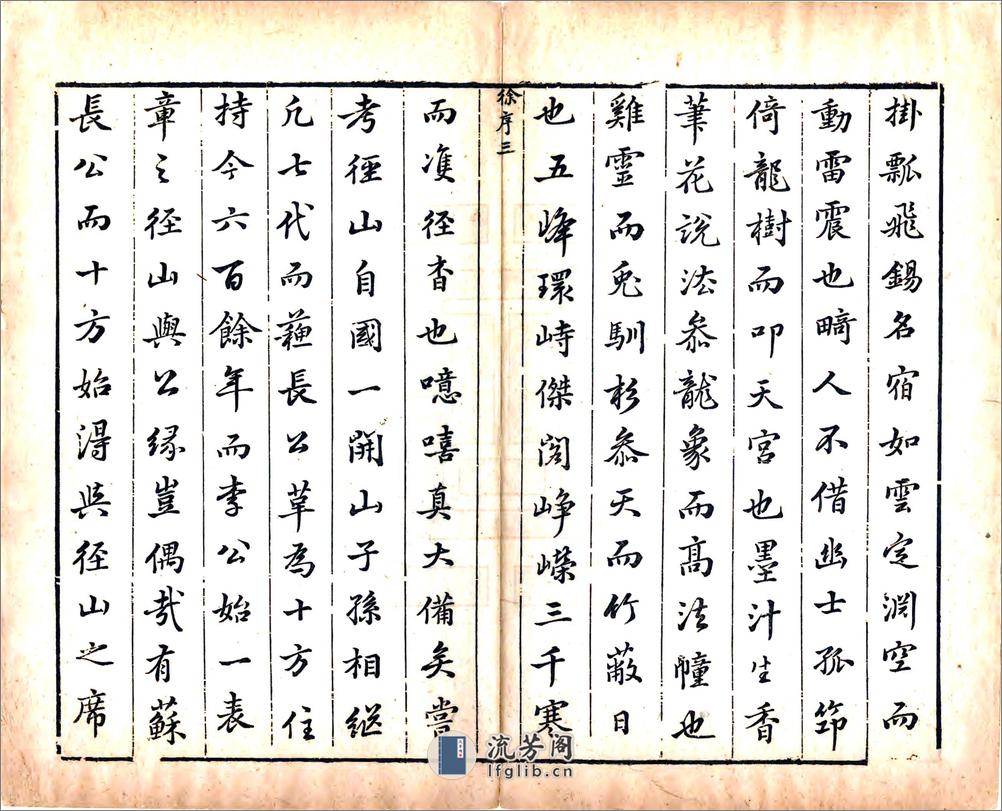 掛瓢飛錫名宿如雲定淵空而
動雷震也畸人不借幽士孤筇
倚龍樹而叩天宮也墨汁生香
筆花說法叅龍象而高法幢也
雞靈而兎馴杉叅天而竹蔽日
也五峰環峙傑閣崢嶸三千寒
徐序三
而凖徑杳也噫嘻真大備矣嘗
考徑山自國一開山子孫相繼
凢七代而蘓長公革為十方住
持今六百餘年而李公始一表
章之徑山與公緣豈偶哉有蘇
長公而十方始得與徑山之席
流芳阁
lfglib.cn